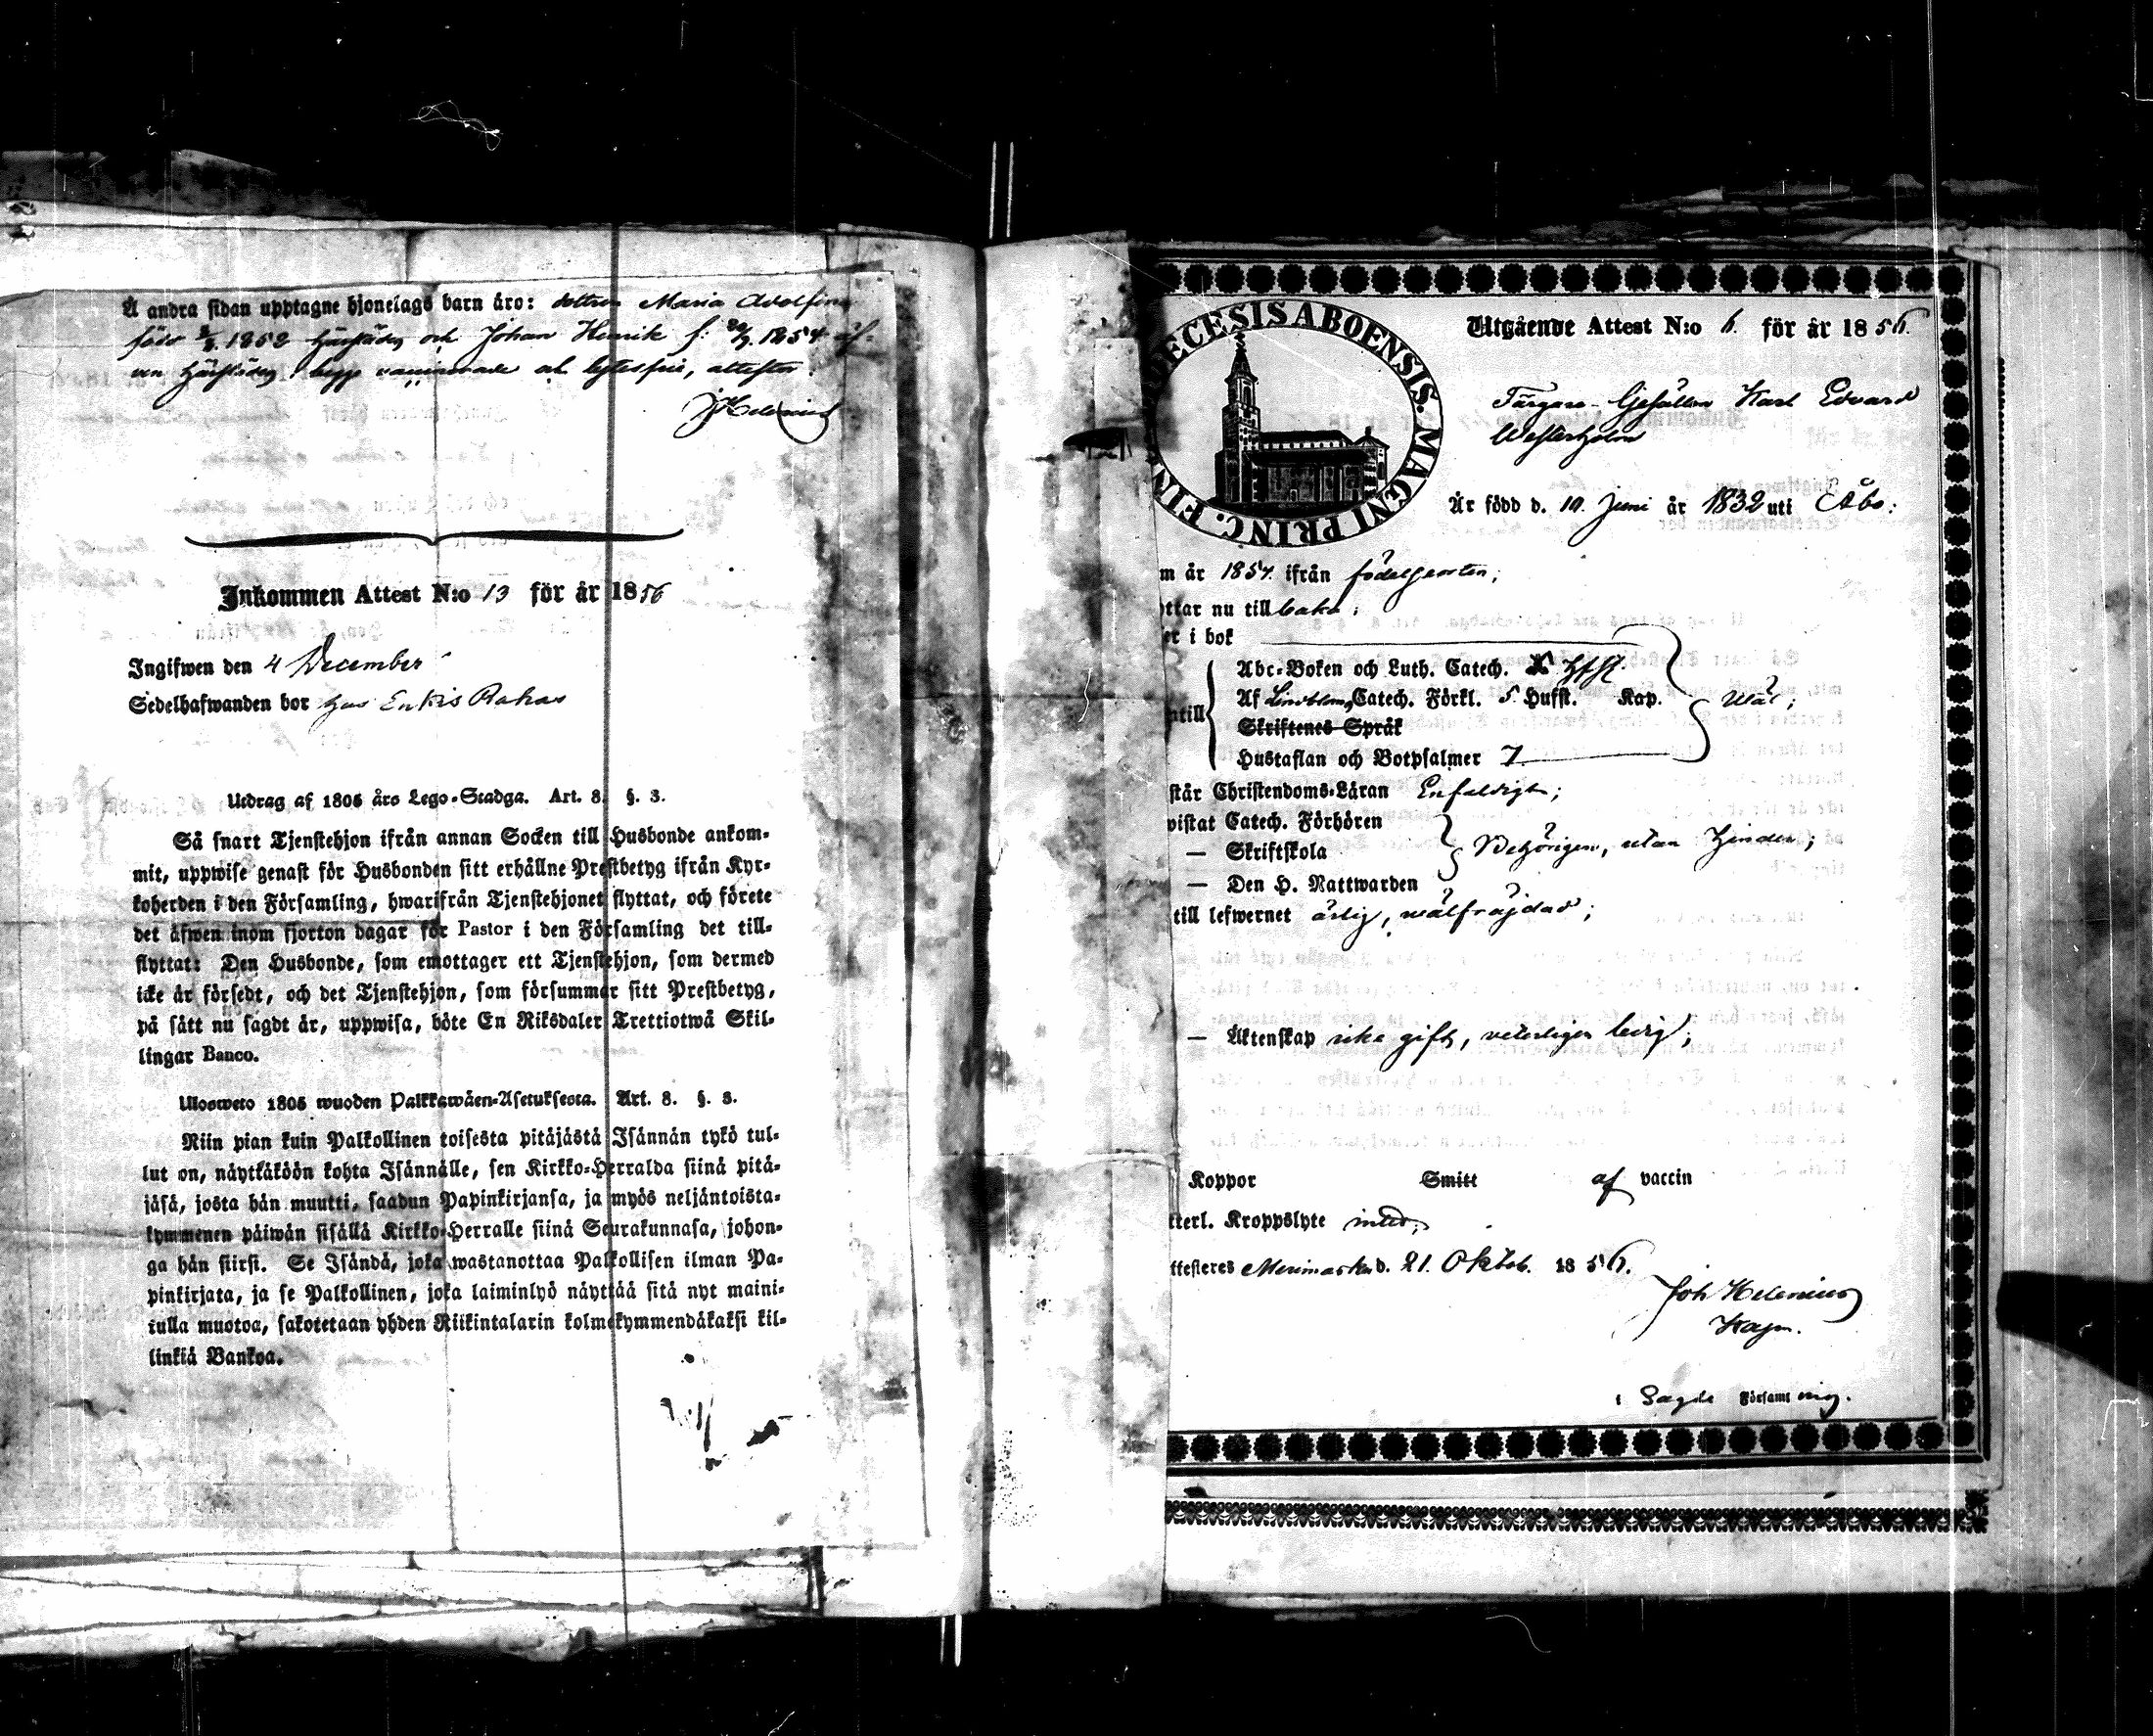 Å andra sidan upptagne hjonelags barn äro: dottren Maria Adolfina
född 1852 härstädes och Johan Henrik f. 1854 äf-
ven härstädes, begge vaccinerade och lytesfrie, attester.
JHelenius
Inkommen Attest N:o 13 för år 1856
Ingifwen den 4 December
Sedelhafwanden bor hos Enkis Rahas
Utdrag af 1805 års Lego-Stadga. Art. 8. §. 3.
Så snart Tjenstehjon ifrån annan Socken till Husbonde ankom-
mit, uppwise genast för Husbonden sitt erhållne Prestbetyg ifrån Kyr-
koherden i den Församling, hwarifrån Tjenstehjonet flyttat, och förete
det äfwen inom fjorton dagar för Pastor i den Församling det till-
flyttat: Den Husbonde, som emottager ett Tjenstehjon, som dermed
icke är försedt, och det Tjenstehjon, som försummar sitt Prestbetyg,
på sätt nu sagdt är, uppwisa, böte En Riksdaler Trettiotwå Skil-
lingar Banco.
Uloswето 1805 wuoden Palkkawäen-Asetuksesta. Art. 8. §. 3.
Niin pian kuin Palkollinen toisesta pitäjästä Isännän tykö tul-
lut on, näyttäköön kohta Isännälle, sen Kirkko-Herralda siinä pitä-
jäsä, josta hän muutti, saadun Papinkirjansa, ja myös neljäntoista-
kymmenen päiwän sisällä Kirkko-Herralle siinä Seurakunnasa, johon-
ga hän siirsi. Se Isändä, joka wastanottaa Palkollisen ilman Pa-
pinkirjata, ja se Palkollinen, joka laiminlyö näyttää sitä nyt maini-
tulla muotoa, sakotetaan yhden Riikintalarin kolmekymmendäkaksi kil-
linkiä Bankoa.
DECESIS ABOENSIS. MAGNI PRINC. FIN
Utgående Attest N:o 6. för år 1856.
Färgare-Gesällen Karl Edvard
Westerholm
Är född d. 10. Juni år 1832 uti Åbo:
m år 1854. ifrån födelseorten;
ttar nu tillbaka;
er i bok
Abc-Boken och Luth. Catech.
Af Lindbloms Catech. Förkl. 5. Hufst. Kap. Wäl;
ntill
Skriftenes Språk
Hustaflan och Botpsalmer 7.
står Christendoms-Läran Enfaldigt;
vistat Catech. Förhören
— Skriftskola Behörigen, utan hinder;
— Den H. Nattwarden
till lefwernet ärlig, wälfräjdad;
— Äktenskap icke gift, veterligen ledig;
Koppor Smitt af vaccin
tterl. Kroppslyte intet;
ttesteres Merimasku d. 21. Oktob. 1856.
Joh Helenius
Kapn.
i Sagde Församl ing.